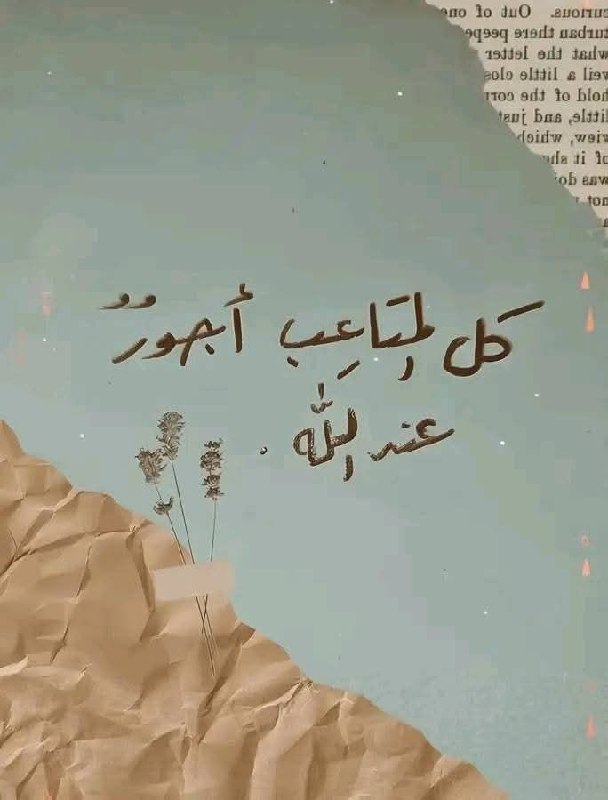 curious. Out of one
turban there peepe
what the letter
veil a little clos
hold of the
little, and just
view, which
of it she
was
not
كل المتاعِب أجورٌ
عند اللّٰه .